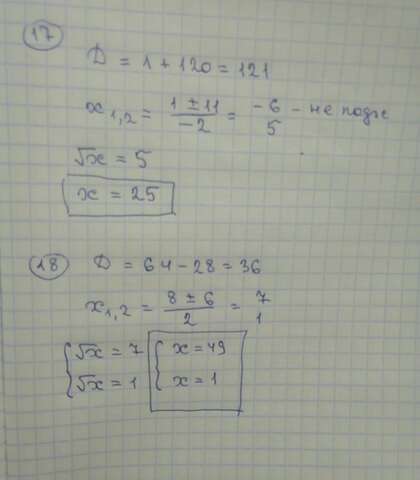 17
D = 1 + 120 = 121
x 1,2 = 1 ± 11 / -2 = -6 - не подх
5
√x = 5
x = 25
18
D = 64 - 28 = 36
x 1,2 = 8 ± 6 / 2 = 7
1
{ √x = 7 { x = 49
√x = 1 x = 1